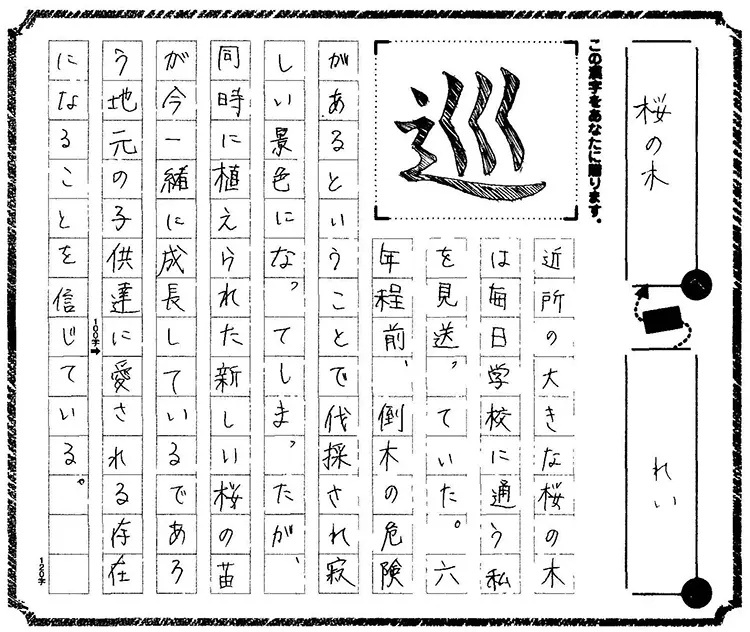 桜の木
れい
この漢字をあなたに贈ります。
巡
近所の大きな桜の木
は毎日学校に通う私
を見送っていた。六
年程前、倒木の危険
があるということで伐採され寂
しい景色になってしまったが、
同時に植えられた新しい桜の苗
が今一緒に成長しているであろ
う地元の子供達に愛される存在
になることを信じている。
100字
120字